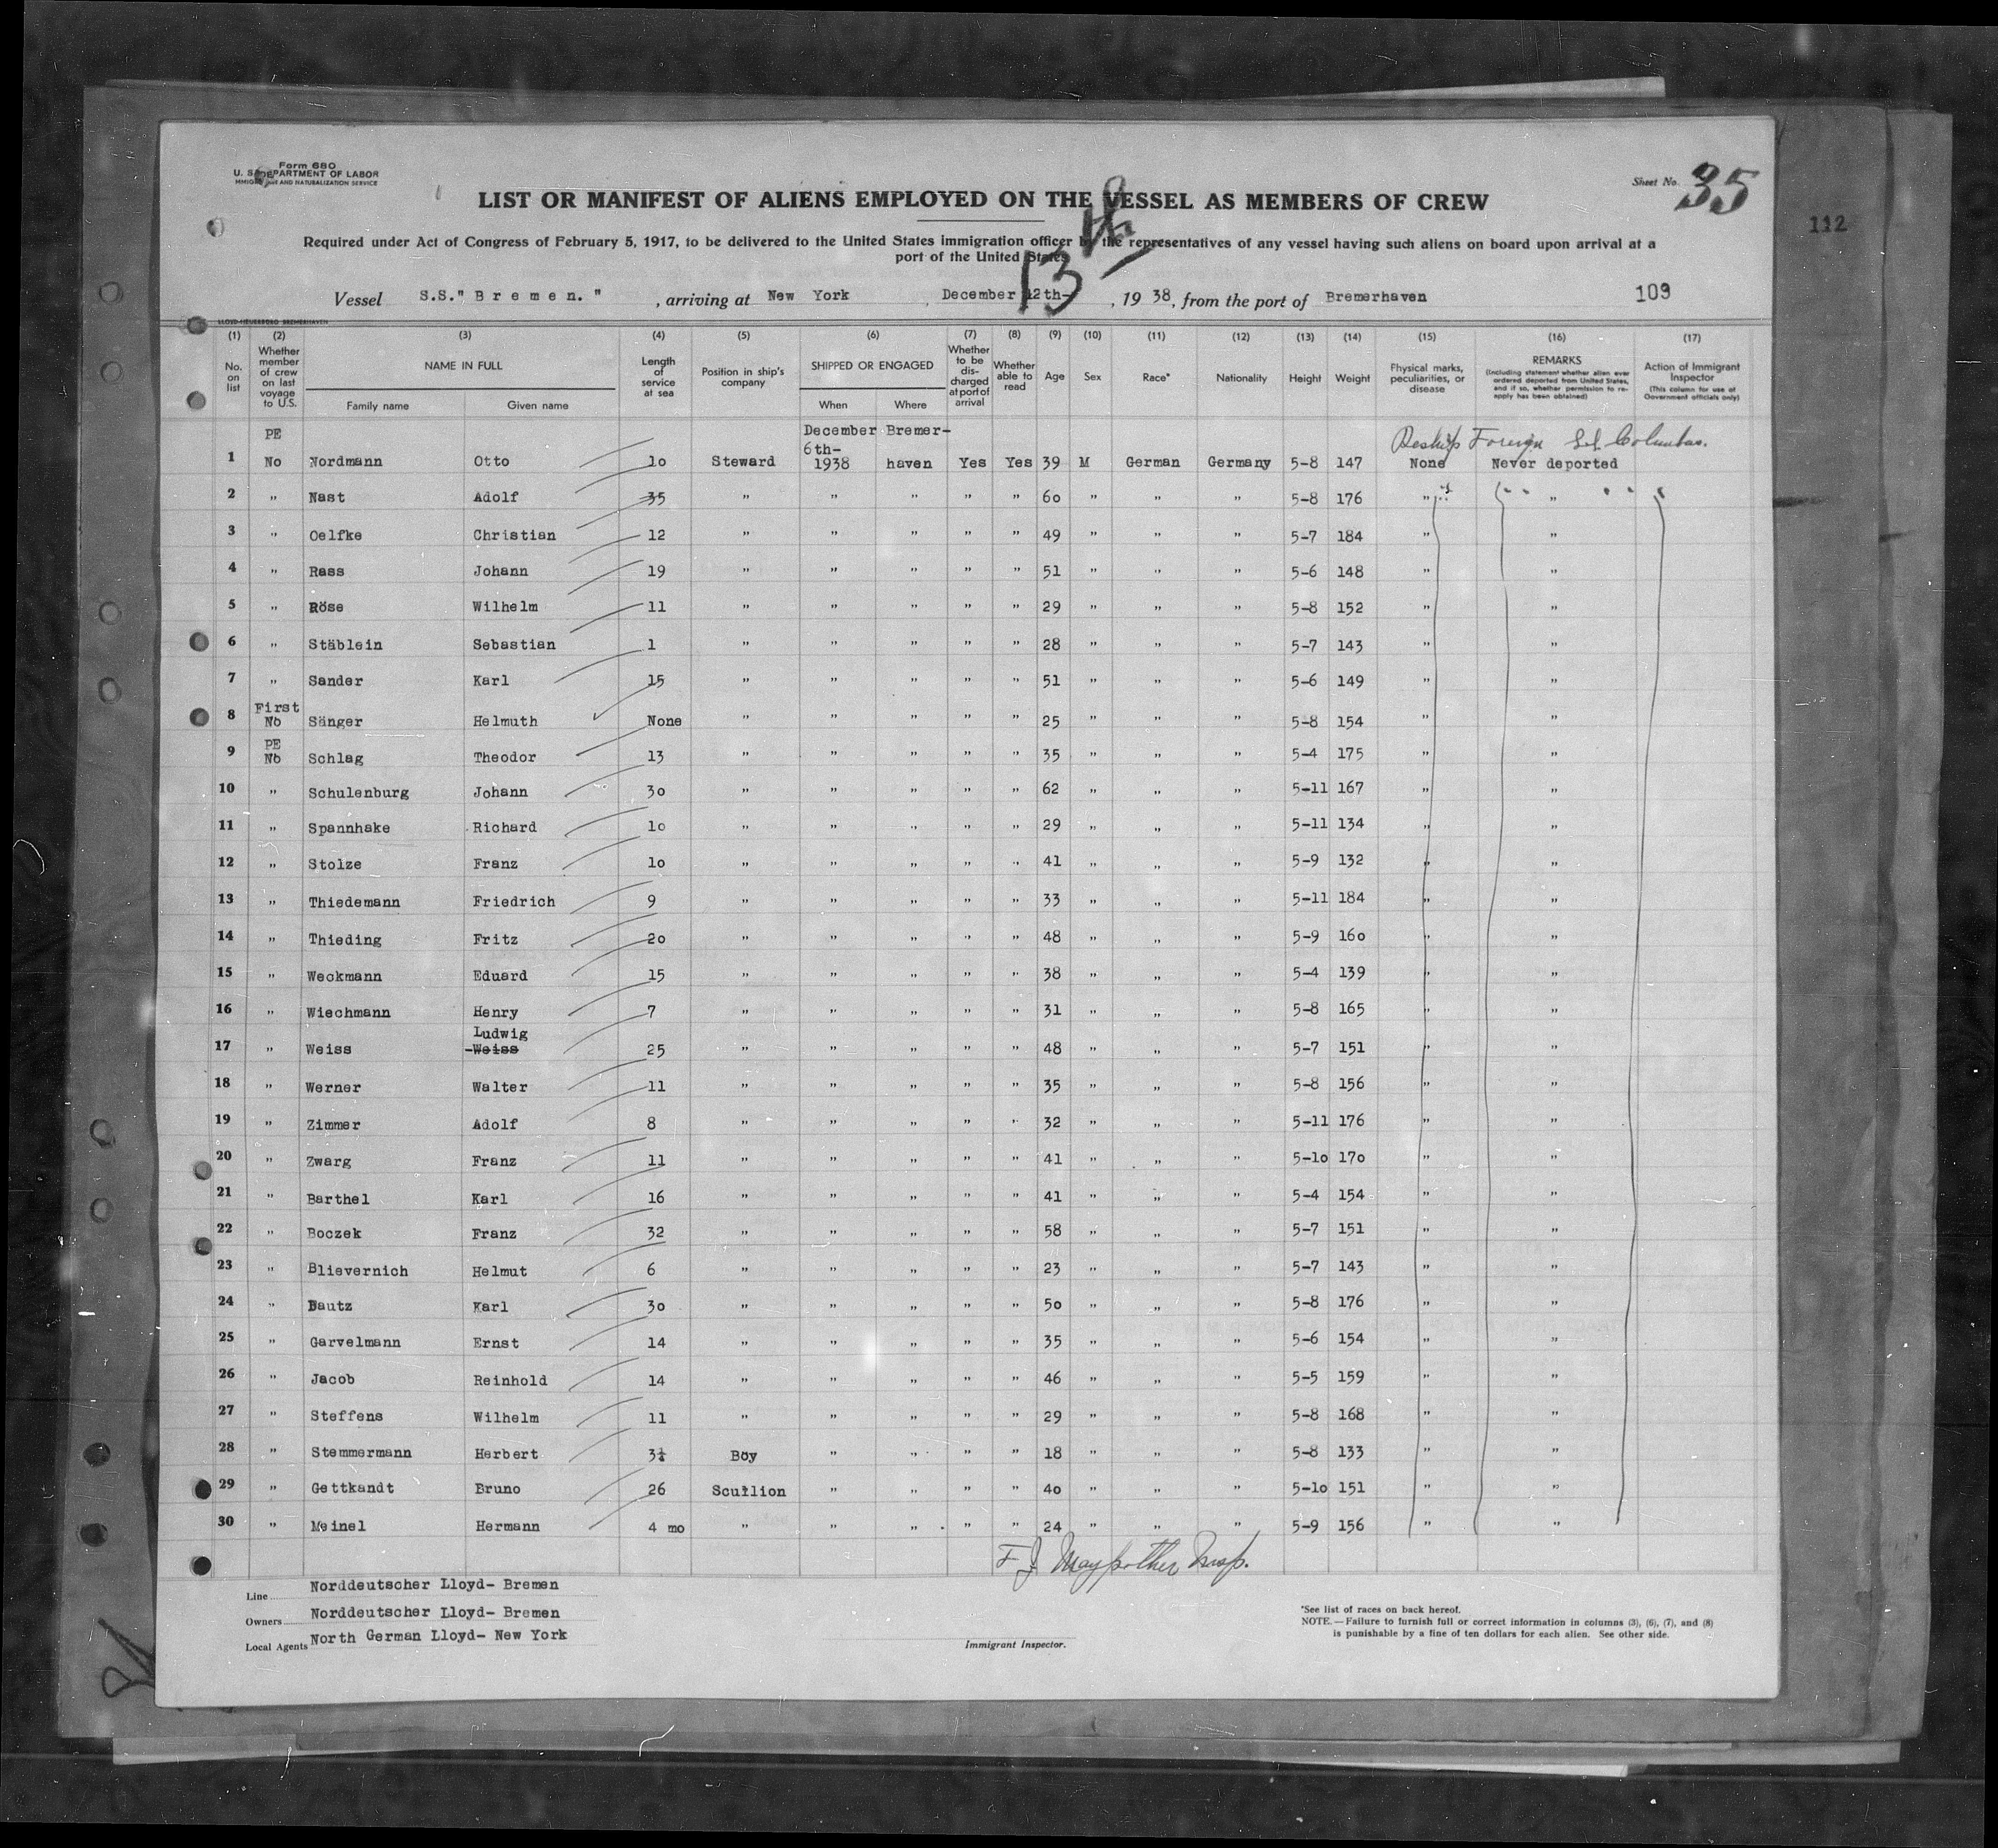 Form 680
U. S. DEPARTMENT OF LABOR
AND NATURALIZATION SERVICE
Sheet No. 35
112
LIST OR MANIFEST OF ALIENS EMPLOYED ON THE VESSEL AS MEMBERS OF CREW
Required under Act of Congress of February 5, 1917, to be delivered to the United States immigration officer by the representatives of any vessel having such aliens on board upon arrival at a
port of the United States
13th
Vessel S.S." B r e m e n. " , arriving at New York , December 12th- , 19 38, from the port of Bremerhaven 109
(1) (2) (3) (4) (5) (6) (7) (8) (9) (10) (11) (12) (13) (14) (15) (16) (17)
No. on list
Whether member of crew on last voyage to U.S.
NAME IN FULL
Family name Given name
Length of service at sea
Position in ship's company
SHIPPED OR ENGAGED
When Where
Whether to be discharged at port of arrival
Whether able to read
Age
Sex
Race*
Nationality
Height
Weight
Physical marks, peculiarities, or disease
REMARKS
(Including statement whether alien ever ordered deported from United States, and if so, whether permission to reapply has been obtained)
Action of Immigrant Inspector
(This column for use of Government officials only)
PE December Bremer- Foreign Columbus.
6th-
1 No Nordmann Otto 10 Steward 1938 haven Yes Yes 39 M German Germany 5-8 147 None Never deported
2 " Nast Adolf 35 " " " " " 60 " " " 5-8 176 " "
3 " Oelfke Christian 12 " " " " " 49 " " " 5-7 184 " "
4 " Rass Johann 19 " " " " " 51 " " " 5-6 148 " "
5 " Röse Wilhelm 11 " " " " " 29 " " " 5-8 152 " "
6 " Stäblein Sebastian 1 " " " " " 28 " " " 5-7 143 " "
7 " Sander Karl 15 " " " " " 51 " " " 5-6 149 " "
First
8 No Sänger Helmuth None " " " " " 25 " " " 5-8 154 " "
PE
9 No Schlag Theodor 13 " " " " " 35 " " " 5-4 175 " "
10 " Schulenburg Johann 30 " " " " " 62 " " " 5-11 167 " "
11 " Spannhake Richard 10 " " " " " 29 " " " 5-11 134 " "
12 " Stolze Franz 10 " " " " " 41 " " " 5-9 132 " "
13 " Thiedemann Friedrich 9 " " " " " 33 " " " 5-11 184 " "
14 " Thieding Fritz 20 " " " " " 48 " " " 5-9 160 " "
15 " Weckmann Eduard 15 " " " " " 38 " " " 5-4 139 " "
16 " Wiechmann Henry 7 " " " " " 31 " " " 5-8 165 " "
Ludwig
17 " Weiss Weiss 25 " " " " " 48 " " " 5-7 151 " "
18 " Werner Walter 11 " " " " " 35 " " " 5-8 156 " "
19 " Zimmer Adolf 8 " " " " " 32 " " " 5-11 176 " "
20 " Zwarg Franz 11 " " " " " 41 " " " 5-10 170 " "
21 " Barthel Karl 16 " " " " " 41 " " " 5-4 154 " "
22 " Boczek Franz 32 " " " " " 58 " " " 5-7 151 " "
23 " Blievernich Helmut 6 " " " " " 23 " " " 5-7 143 " "
24 " Bautz Karl 30 " " " " " 50 " " " 5-8 176 " "
25 " Garvelmann Ernst 14 " " " " " 35 " " " 5-6 154 " "
26 " Jacob Reinhold 14 " " " " " 46 " " " 5-5 159 " "
27 " Steffens Wilhelm 11 " " " " " 29 " " " 5-8 168 " "
28 " Stemmermann Herbert 3½ Boy " " " " 18 " " " 5-8 133 " "
29 " Gettkandt Bruno 26 Scullion " " " " 40 " " " 5-10 151 " "
30 " Meinel Hermann 4 mo " " " " " 24 " " " 5-9 156 " "
Line Norddeutscher Lloyd- Bremen
Owners Norddeutscher Lloyd- Bremen
Local Agents North German Lloyd- New York
Immigrant Inspector.
*See list of races on back hereof.
NOTE.—Failure to furnish full or correct information in columns (3), (6), (7), and (8)
is punishable by a fine of ten dollars for each alien. See other side.